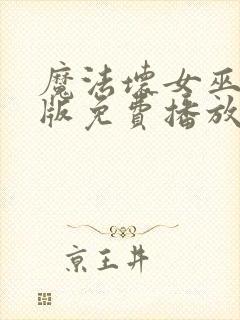 魔法坏女巫
版免费播放
京王井